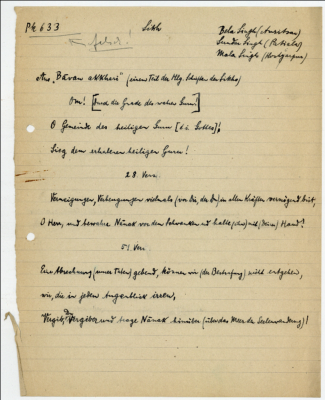 PK 633
Sikh
Bela Singh (Amritsar)
Sundar Singh (Patiala)
Mala Singh
Aus „Bāvan akkharī" (einem Teil der Hlg. Schriften der Sikhs)
Om! [Durch die Gnade des wahren Guru]
O Gemeinde des heiligen Guru [d. h. Gottes]!
Sieg dem erhabenen heiligen Guru!
28. Vers.
Verneigungen, Verbeugungen vielmals (vor Dir, der Du) in allen Kräften vermögend bist,
O Herr, und bewahre Nānak vor dem Schwanken und halte (ihn) mit (Deiner) Hand!
51. Vers
Eine Abrechnung (unserer Taten) gebend, können wir (der Bestrafung) nicht entgehen,
wir, die in jedem Augenblick irren,
Vergib, Vergeber und trage Nānak hinüber (über das Meer der Seelenwanderung)!